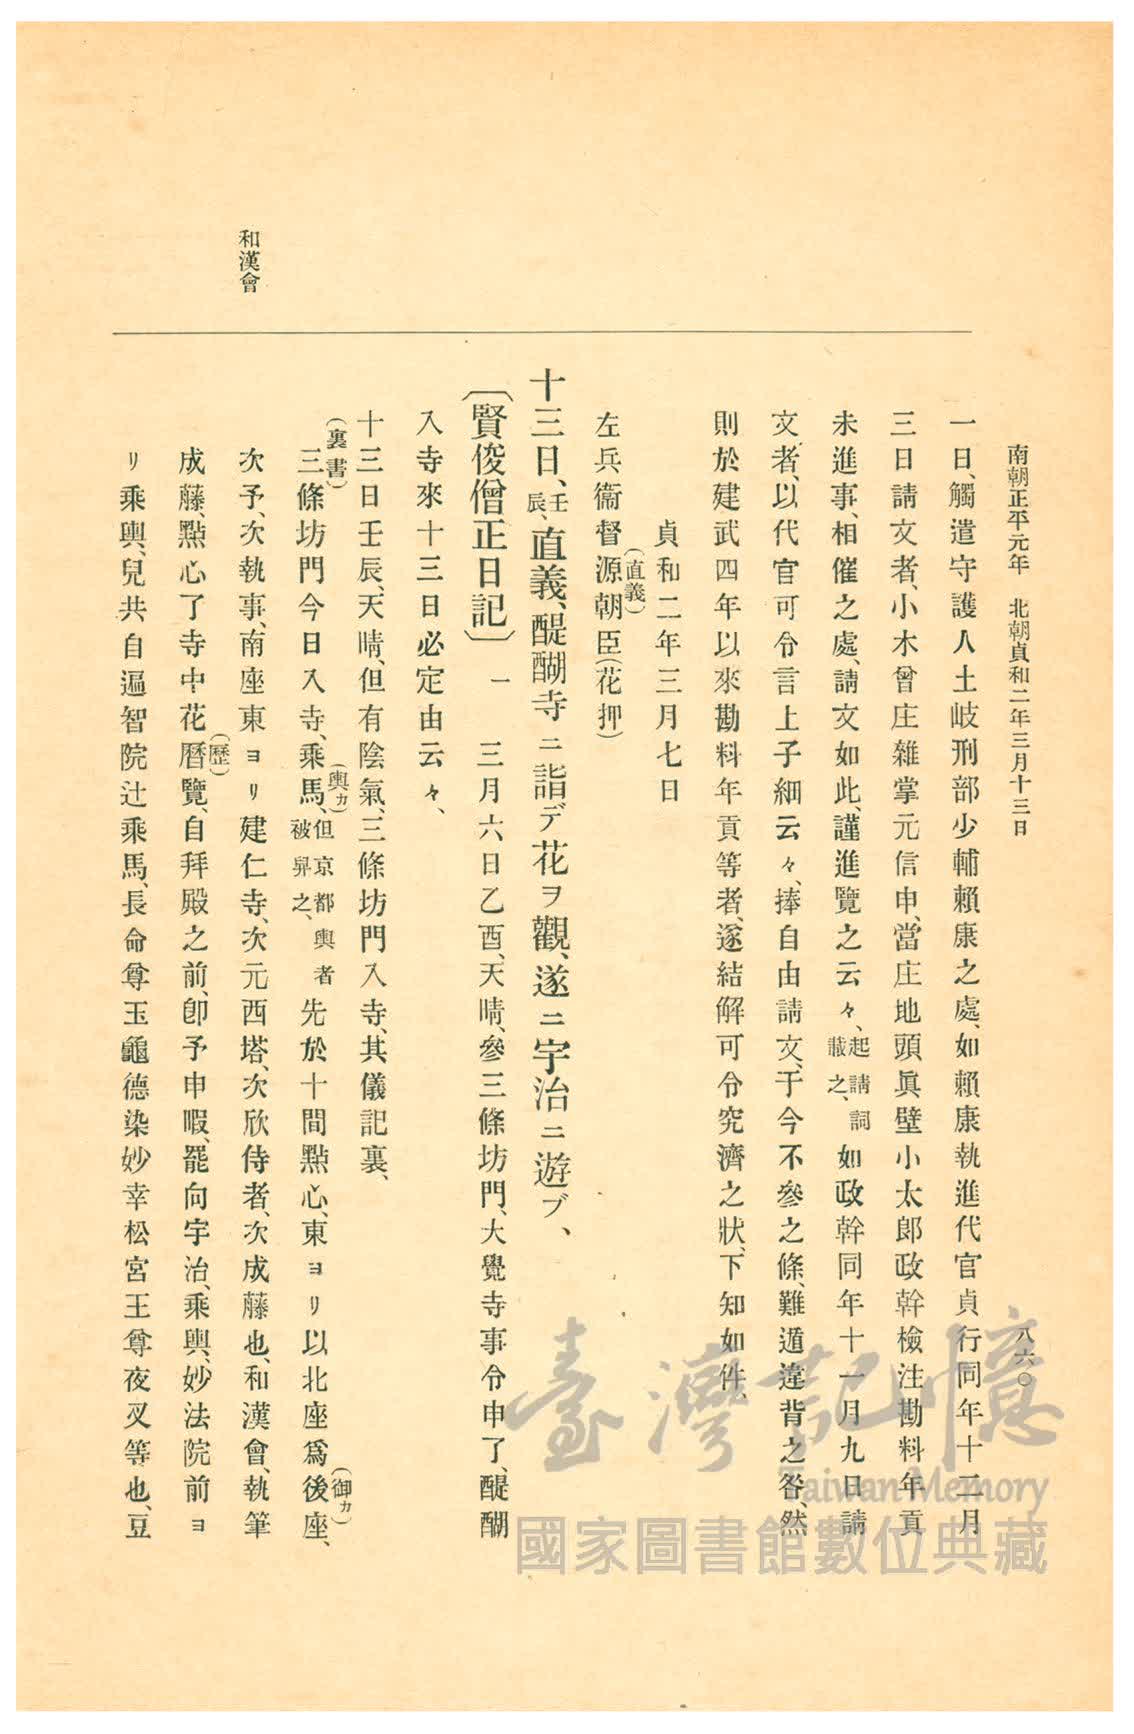 南朝正平元年　北朝貞和二年三月十三日
八六〇
一日、觸遣守護人土岐刑部少輔賴康之處、如賴康執進代官貞行同年十二月
三日請文者、小木曾庄雜掌元信申、當庄地頭眞壁小太郎政幹檢注勘料年貢
未進事、相催之處、請文如此、謹進覽之云々、起請詞載之、如政幹同年十一月九日請
文者、以代官可令言上子細云々、捧自由請文、于今不參之條、難遁違背之咎、然
則於建武四年以來勘料年貢等者、遂結解可令究濟之狀、下知如件、
貞和二年三月七日
左兵衞督源朝臣(花押)
(直義)
十三日、壬辰、直義、醍醐寺ニ詣デ花ヲ觀、遂ニ宇治ニ遊ブ、
〔賢俊僧正日記〕一　三月六日乙酉、天晴、參三條坊門、大覺寺事令申了、醍醐
入寺來十三日必定由云々、
十三日壬辰、天晴、但有陰氣、三條坊門入寺、其儀記裏、
(裏書)
三條坊門今日入寺、乘馬、但京都輿者被舁之、先於十間點心、東ヨリ以北座爲後座、
(輿カ)
(御カ)
次予、次執事、南座東ヨリ建仁寺、次元西塔、次欣侍者、次成藤也、和漢會、執筆
和漢會
成藤、點心了寺中花曆覽、自拜殿之前、卽予申暇、罷向宇治、乘輿、妙法院前ヨ
(歷)
リ乘輿、兒共自遍智院辻乘馬、長命尊玉龜德染妙幸松宮王尊夜叉等也、豆
臺灣記憶
Taiwan Memory
國家圖書館數位典藏